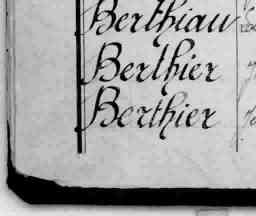 Berthiau
Berthier
Berthier